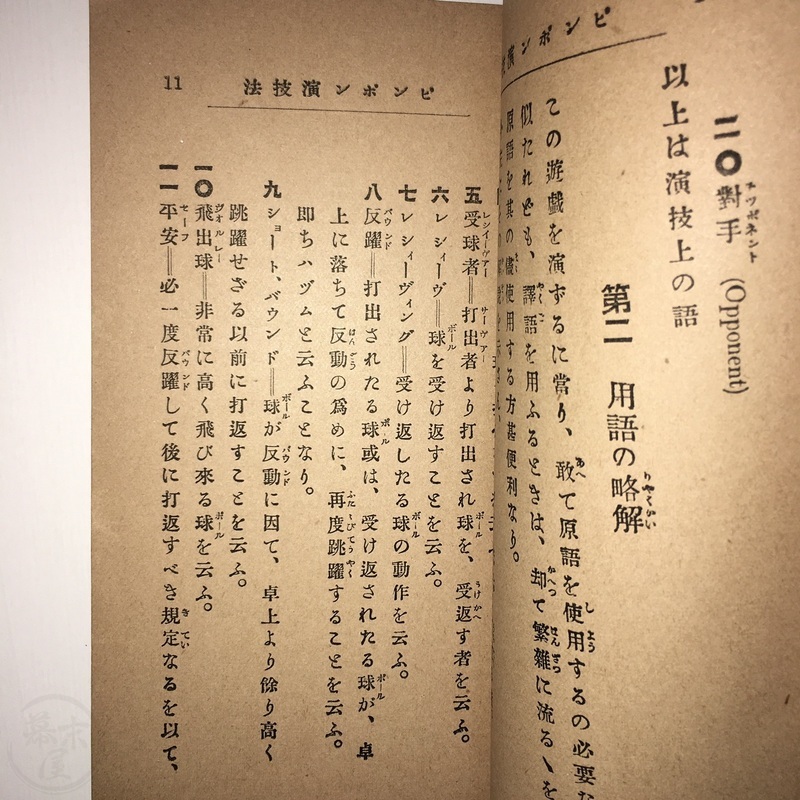 ピンポン演
二〇對手 (Opponent)
オツポネント
以上は演技上の語
第二 用語の略解
りやくかい
この遊戯を演ずるに當り、敢て原語を使用するの必要な
似たれども、譯語を用ふるときは、却て繁雜に流るゝを
原語を其の儘使用する方甚便利なり。
ピンポン演技法
11
五 受球者＝打出者より打出され球を、受返す者を云ふ。
六 レシィーヴ＝球を受け返すことを云ふ。
七 レシィーヴィング＝受け返したる球の動作を云ふ。
八 反躍＝打出されたる球或は、受け返されたる球が、卓
上に落ちて反動の爲めに、再度跳躍することを云ふ。
即ちハヅムと云ふことなり。
九 ショート、バウンド＝球が反動に因て、卓上より餘り高く
跳躍せざる以前に打返すことを云ふ。
一〇 飛出球＝非常に高く飛び來る球を云ふ。
一一 平安＝必一度反躍して後に打返すべき規定なるを以て、